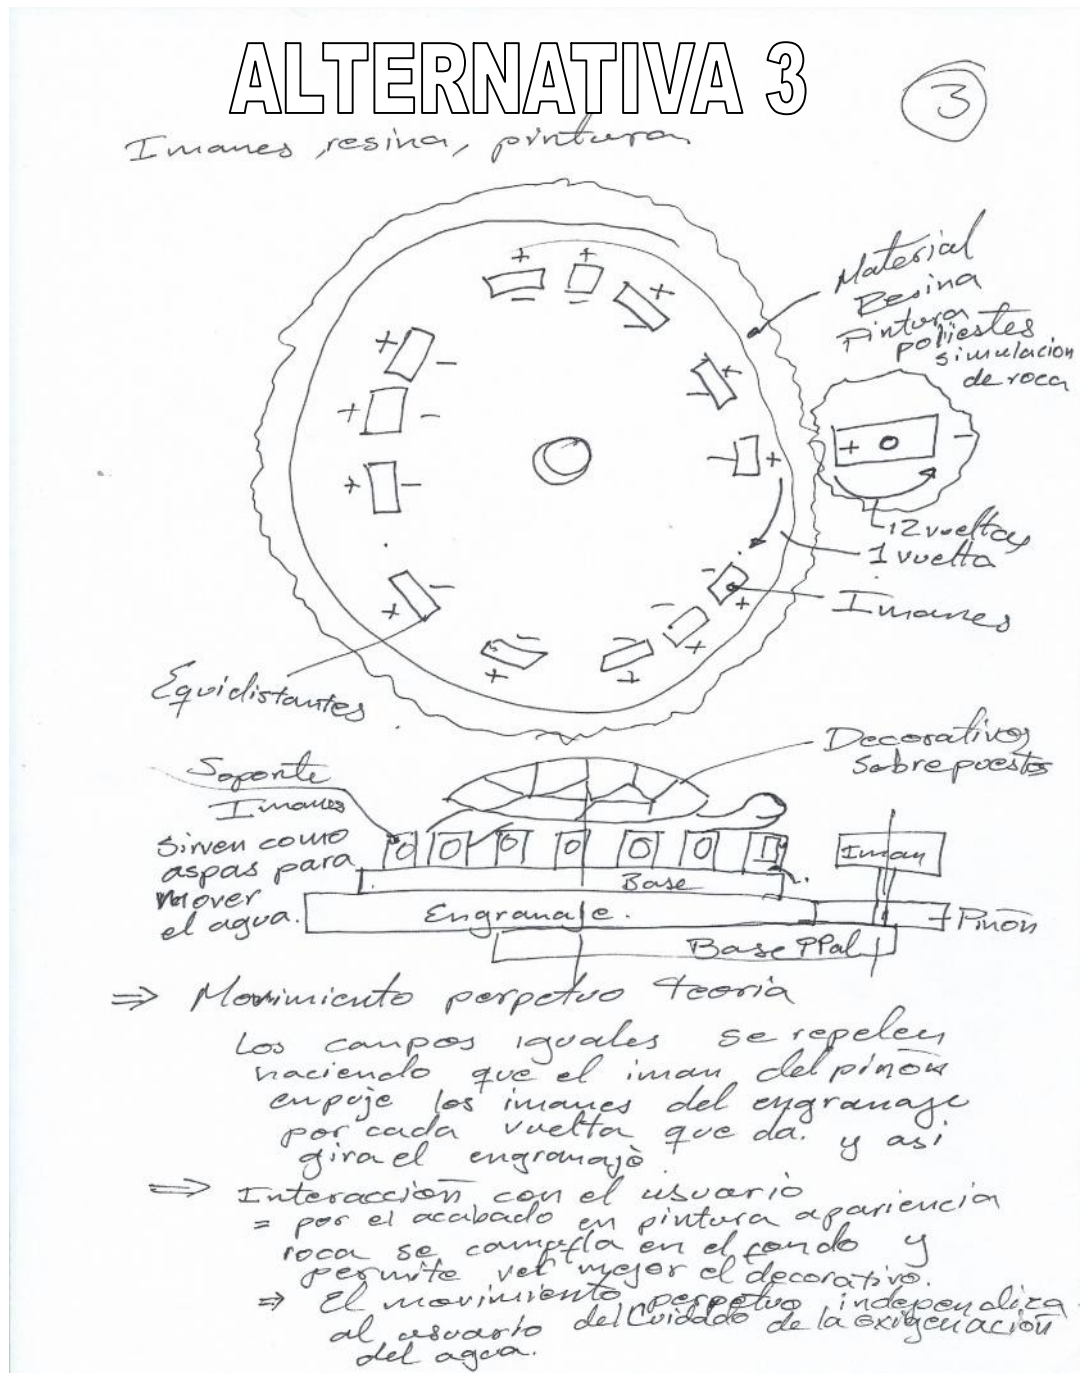 ALTERNATIVA 3
3
Imanes, resina, pintura
+ + +
- -
Material
Resina
Pintura
poliestes
simulacion
de roca
+ -
+ -
+ -
- +
+ -
12 vueltas
1 vuelta
Imanes
Equidistantes
Decorativos
Sobrepuestos
Soporte
Imanes
sirven como
aspas para
mover
el agua.
Iman
Base
Engranaje.
Piñon
Base PPal
⇒ Movimiento perpetuo teoria
Los campos iguales se repelen
haciendo que el iman del piñon
empuje los imanes del engranaje
por cada vuelta que da. y asi
gira el engranaje
⇒ Interaccion con el usuario
= por el acabado en pintura apariencia
roca se camufla en el fondo y
permite ver mejor el decorativo.
⇒ El movimiento perpetuo independiza
al usuario del Cuidado de la oxigenación
del agua.